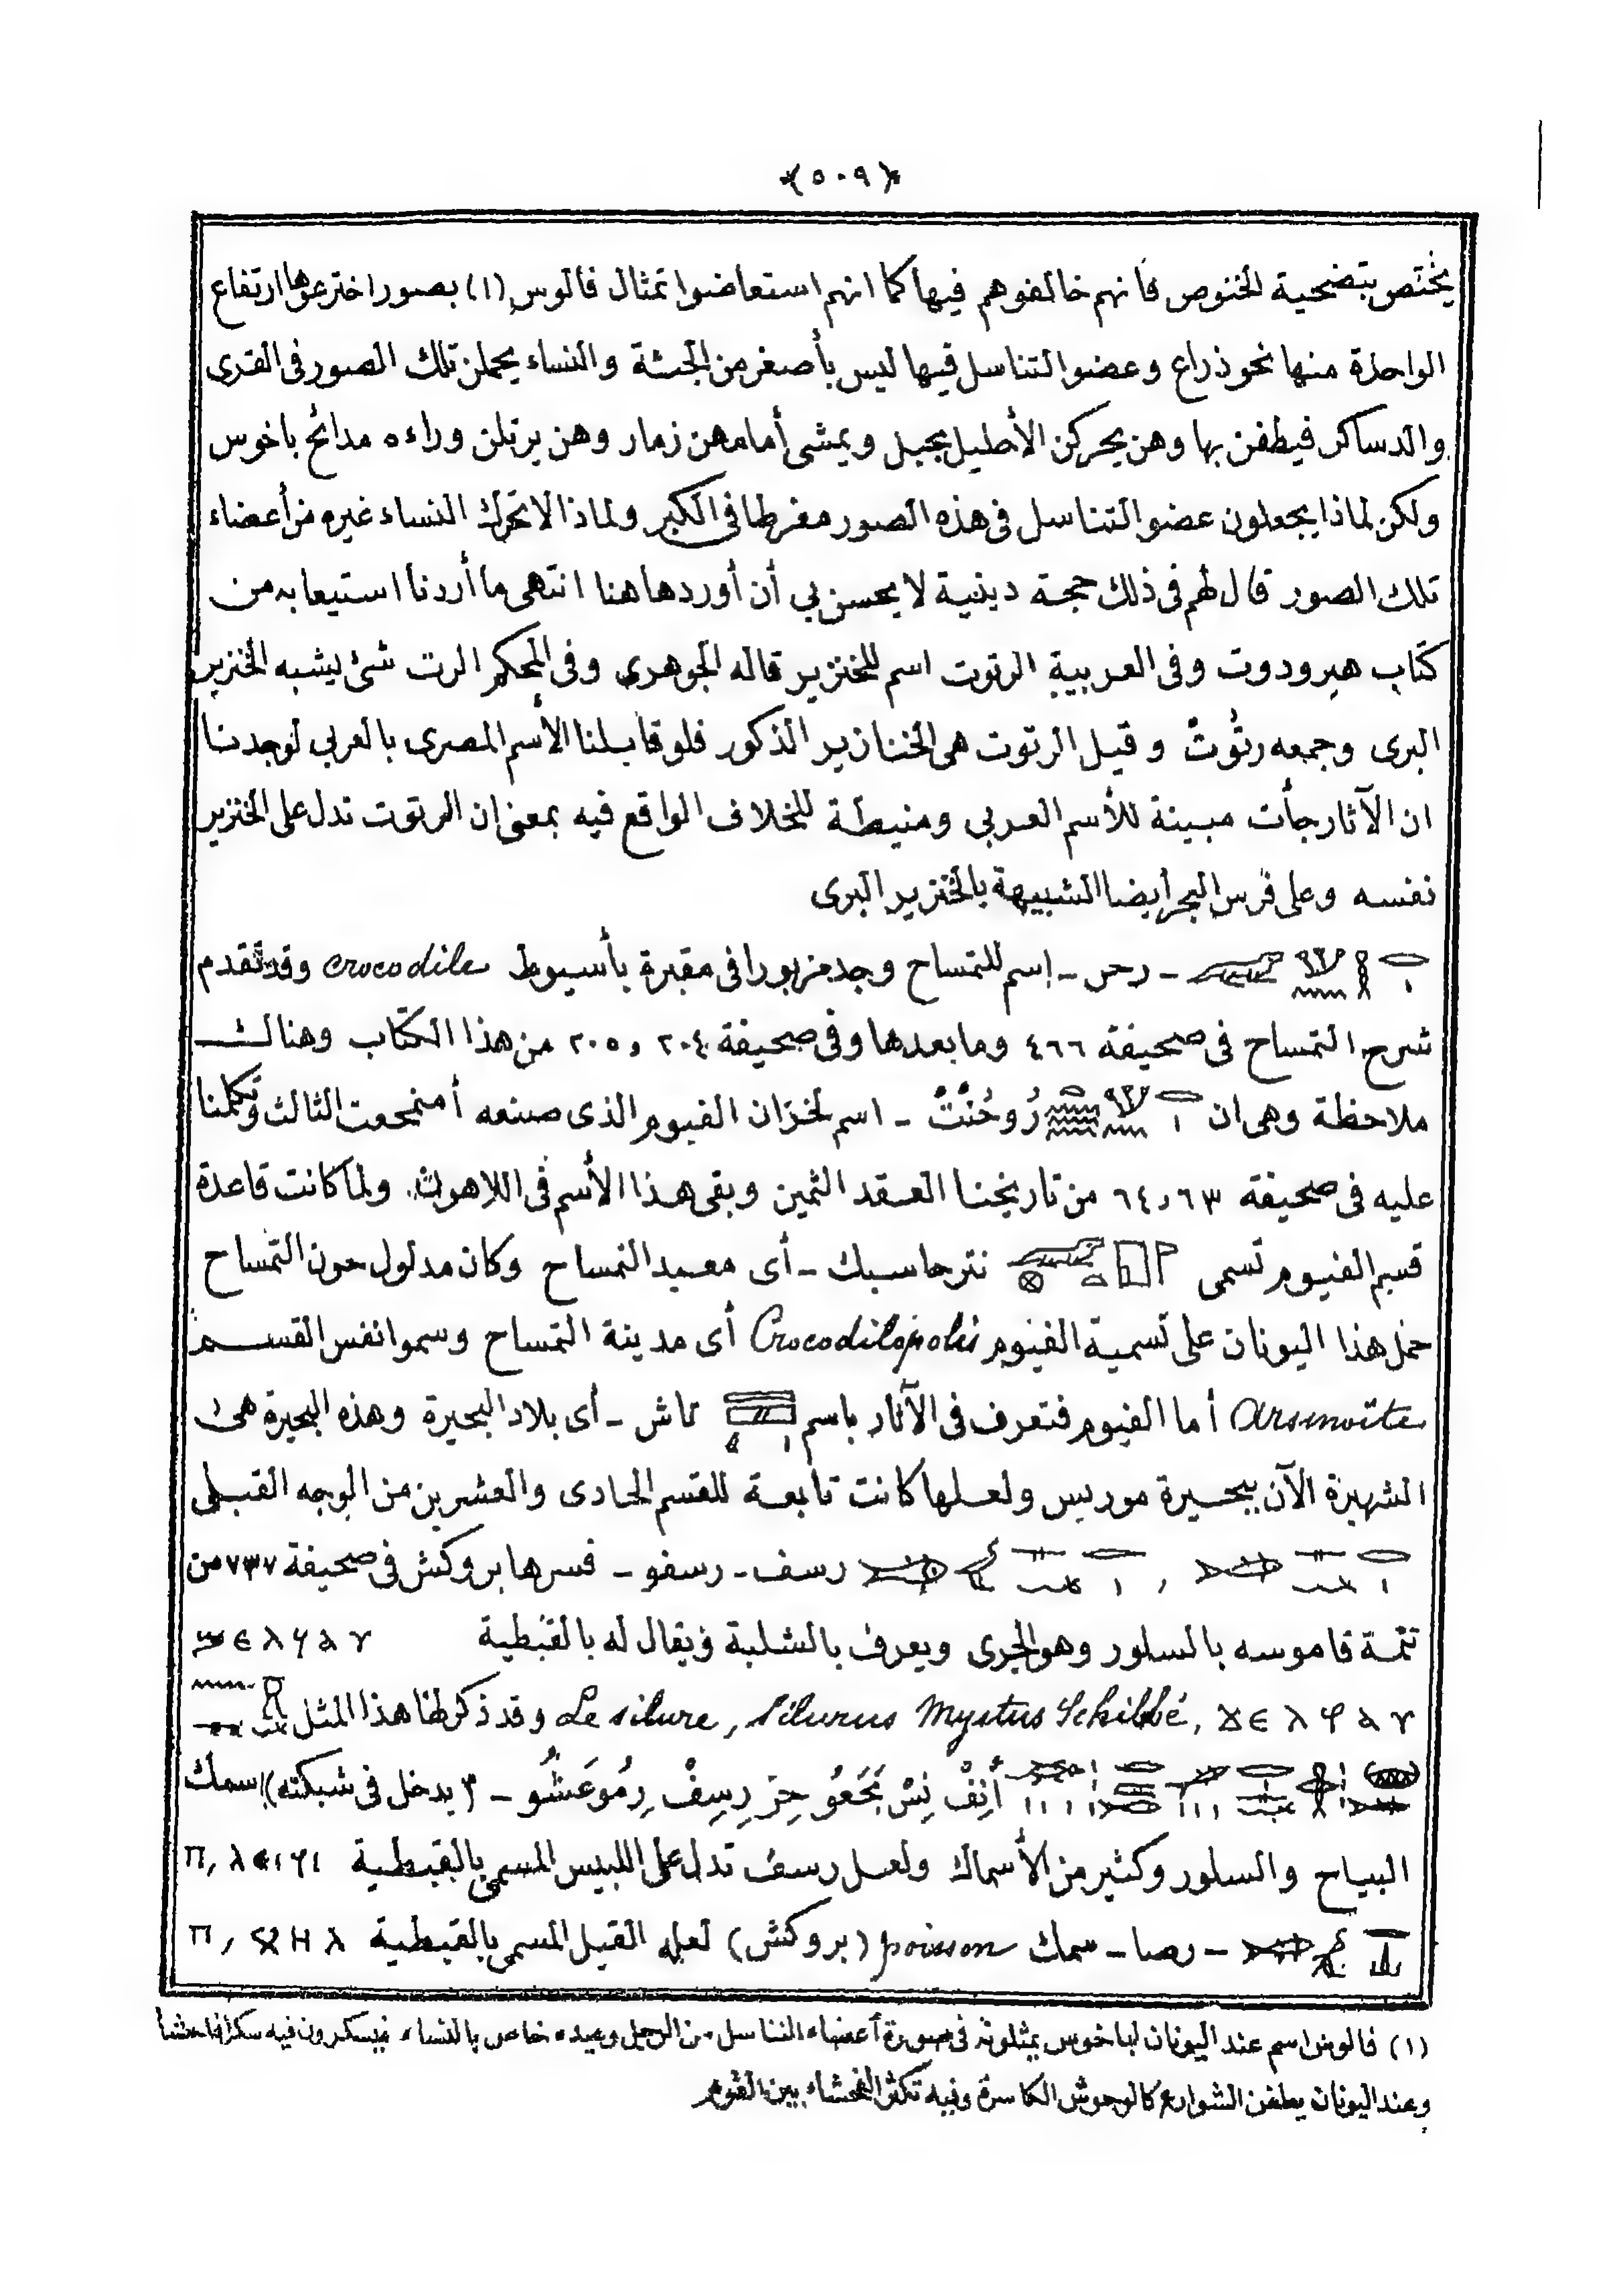 ﴿٥٠٩﴾
يختص بتضحية الخنوص فانهم خالفوهم فيها كما انهم استعاضوا تمثال فالوس (١) بصور اخترعوها ارتفاع
الواحدة منها نحو ذراع وعضو التناسل فيها ليس بأصغر من الجثة والنساء يحملن تلك الصور فى القرى
والدساكر فيطفن بها وهن يحركن الأحليل بحبل ويمشى أمامهن زمار وهن يرتلن وراءه مدائح باخوس
ولكن لماذا يجعلون عضو التناسل فى هذه الصور مفرطا فى الكبر ولماذا لا تحرك النساء غيره من أعضاء
تلك الصور قال لهم فى ذلك حجة دينية لا يحسن بي أن أوردها هنا انتهى ما أردنا استيعابه من
كتاب هيرودوت وفى العربية الرتوت اسم للخنزير قاله الجوهرى وفى المحكم الرت شئ يشبه الخنزير
البرى وجمعه رتُوتٌ وقيل الرتوت هى الخنازير الذكور فلو قابلنا الأسم المصرى بالعربي لوجدنا
ان الآثار جأت مبينة للأسم العربي ومنيطة للخلاف الواقع فيه بمعنى ان الرتوت تدل على الخنزير
نفسه وعلى فرس البحر أيضا الشبيهة بالخنزير البرى
– رحن – إسم للتمساح وجد مزبورا فى مقبرة بأسيوط crocodile وقد تقدم
شرح التمساح فى صحيفة ٤٦٦ وما بعدها وفى صحيفة ٢٠٤ و ٢٠٥ من هذا الكتاب وهنالك
ملاحظة وهى ان رُوحُنْتْ – اسم لخزان الفيوم الذى صنعه أمنمحعت الثالث وتكلمنا
عليه فى صحيفة ٦٣ و ٦٤ من تاريخنا العقد الثمين وبقى هذا الأسم فى اللاهون ولما كانت قاعدة
قسم الفيوم تسمى نترحاسبك – أى معبد التمساح وكان مدلول حون التمساح
حمل هذا اليونان على تسمية الفيوم Crocodilopolis أى مدينة التمساح وسموا نفس القسم
Arsinoïte أما الفيوم فتعرف فى الآثار باسم تاش – أى بلاد البحيرة وهذه البحيرة هى
الشهيرة الآن ببحيرة موريس ولعلها كانت تابعة للقسم الحادى والعشرين من الوجه القبلى
, رسف – رسفو – فسرها بروكش فى صحيفة ٧٣٧ من
تتمة قاموسه بالسلور وهو الجرى ويعرف بالشلبة ويقال له بالقبطية
Le silure, silurus Mystus Schilbé, وقد ذكر لها هذا المثل
أُنِفْ نِنْ بَحَعُو حِرْ رِسِفْ رِمُوعَشُو – (يدخل فى شبكته) سمك
البياح والسلور وكثير من الأسماك ولعل رسف تدل على اللبيس المسمى بالقبطية
– رصا – سمك poisson (بروكش) لعله القيل المسمى بالقبطية
(١) فالوس اسم عند اليونان لباخوس يمثلونه فى صورة أعضاء التناسل من الرجل وعيده خاص بالنساء فيسكرون فيه سكرا فاحشا
وعند اليونان يطفن الشوارع كالوحوش الكاسرة وفيه تكثر الفحشاء بين القوم